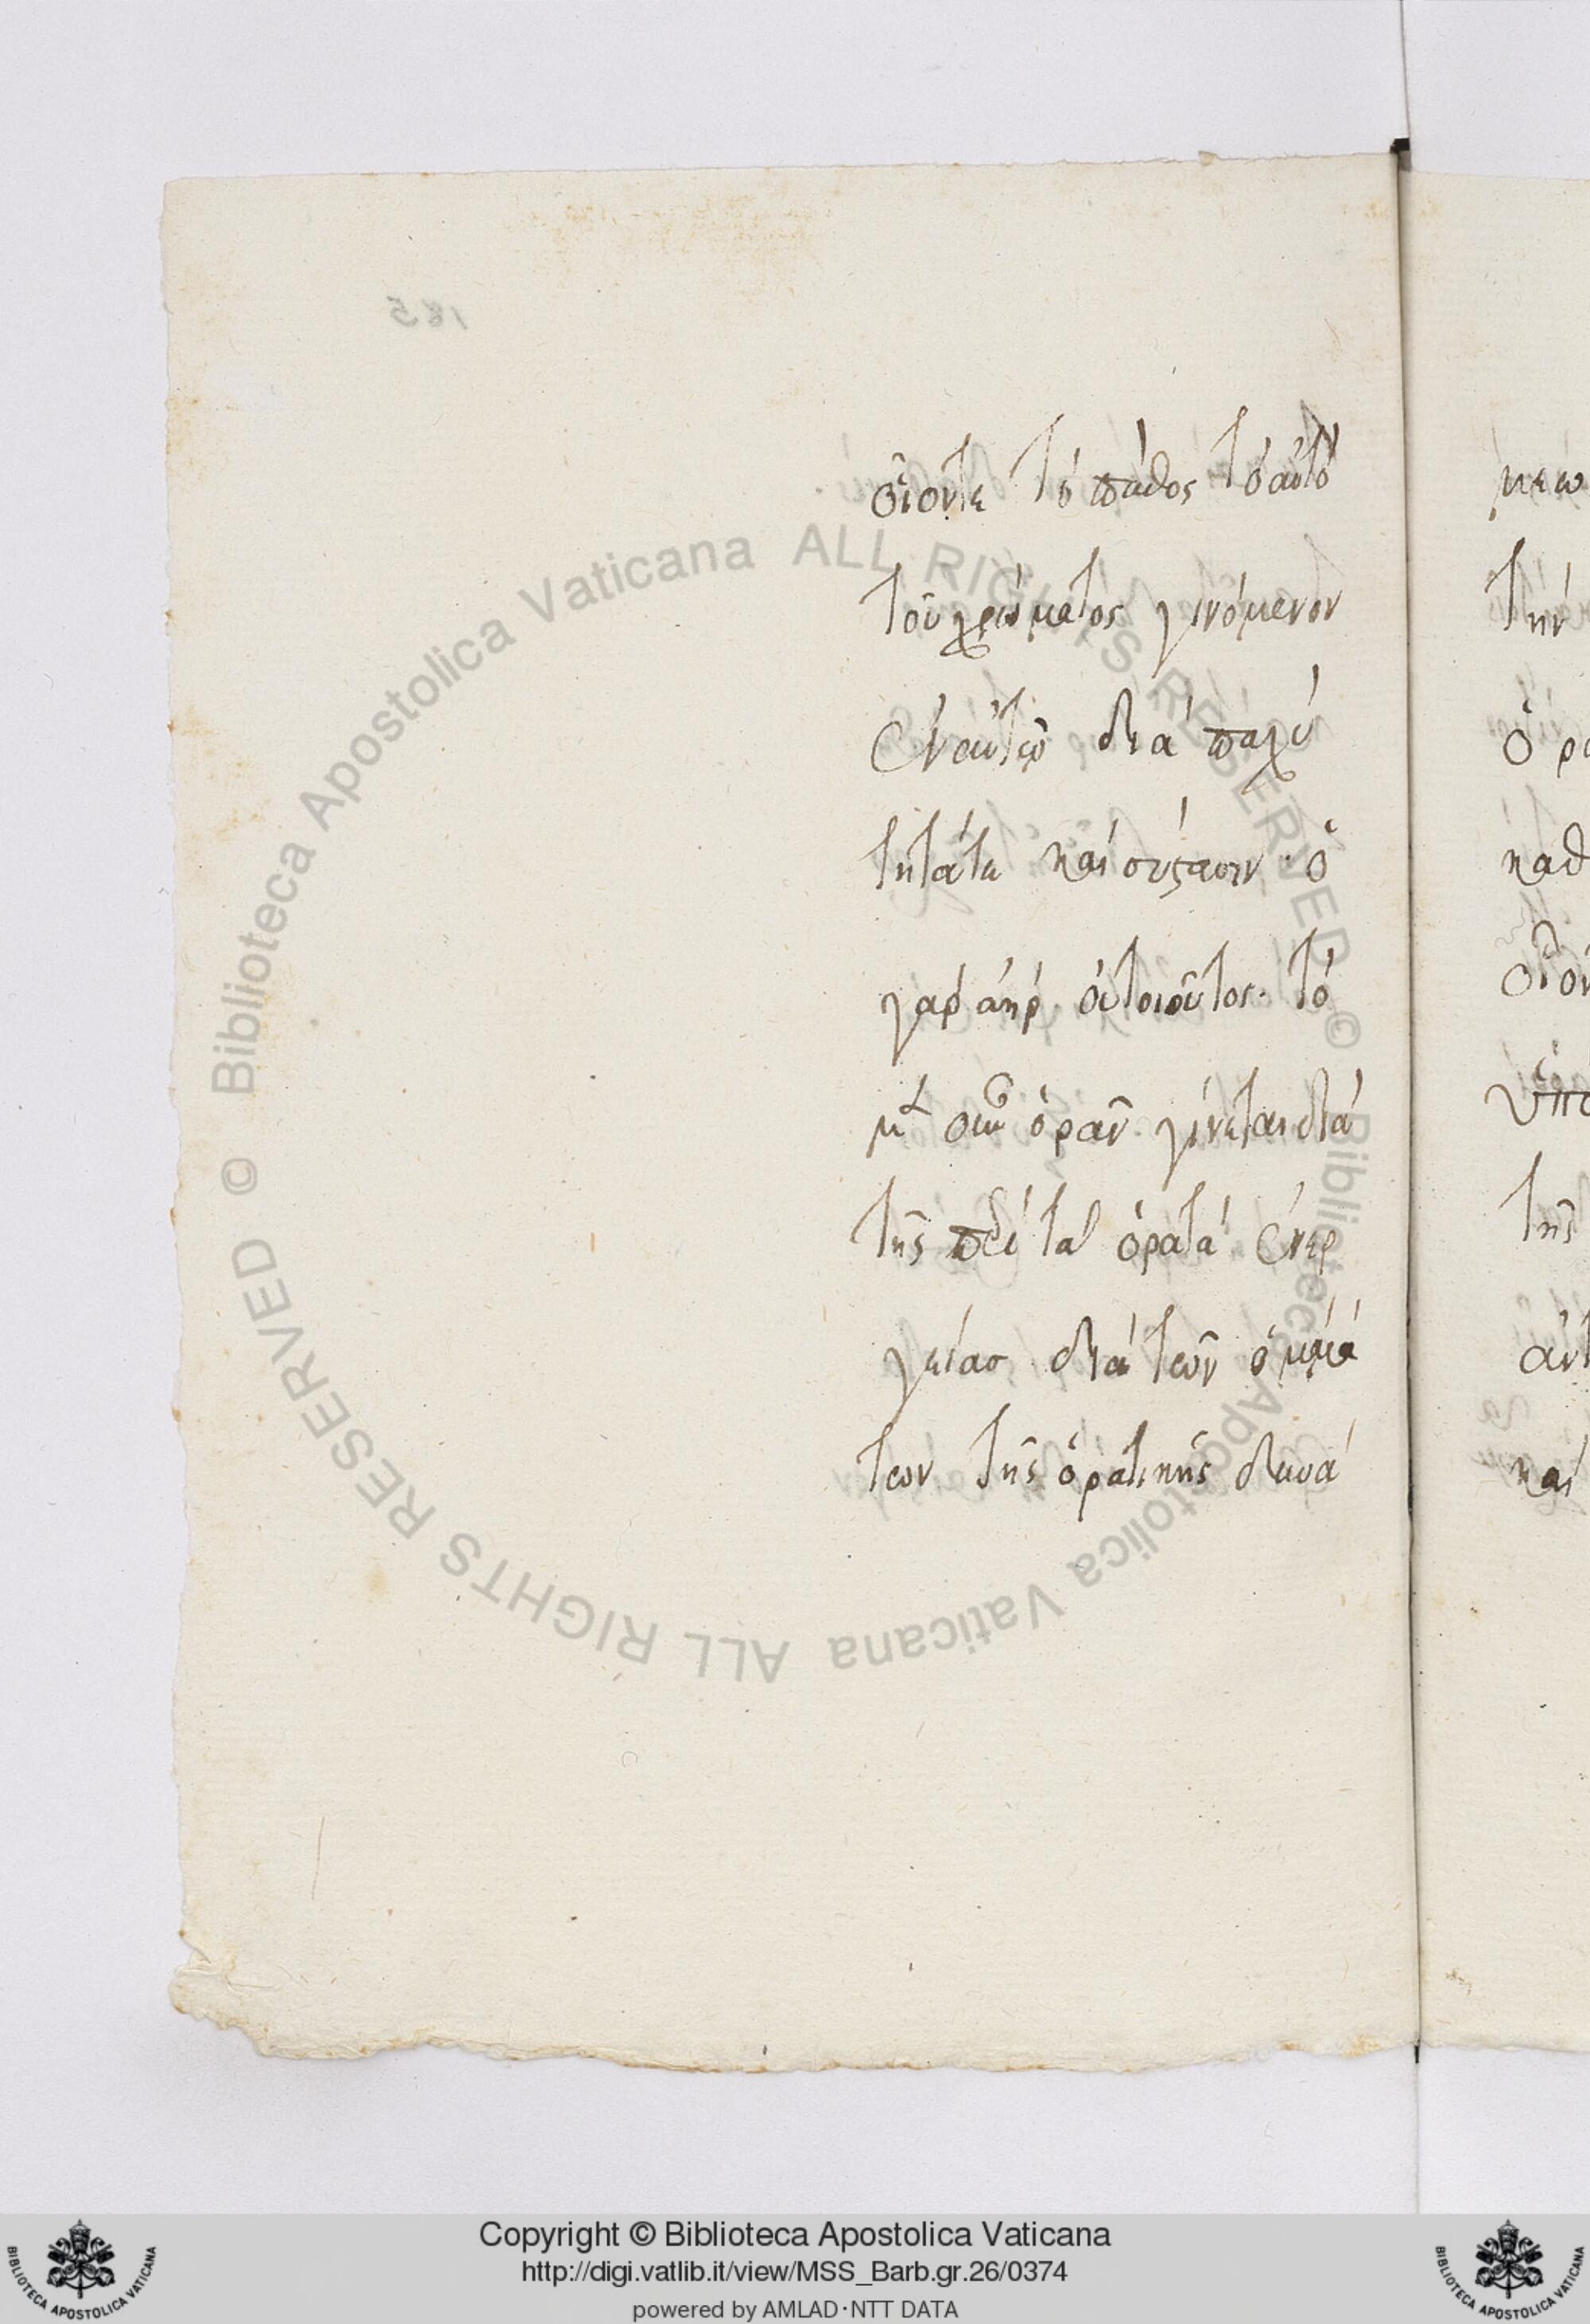 οἷόντε τὸ πάθος τὸ αὐτὸ
τοῦ χρώματος γινόμενον
ἐν αὐτῷ διὰ παχύ
τητά τε καὶ σύστασιν · ὁ
γὰρ ἀὴρ οὐ τοιοῦτος· τὸ
μὲν οὖν ὁρᾶν γίνεται διὰ
τῆς περὶ τὰ ὁρατὰ ἐνερ
γείας διὰ τῶν ὀμμά
των τῆς ὁρατικῆς δυνά
μεω
την
ὁ ρα
καθ
οἷον
ὑπο
τῆς
ἀντ
καὶ
185
Biblioteca Apostolica Vaticana ALL RIGHTS RESERVED © Biblioteca Apostolica Vaticana ALL RIGHTS RESERVED ©
Copyright © Biblioteca Apostolica Vaticana
http://digi.vatlib.it/view/MSS_Barb.gr.26/0374
powered by AMLAD·NTT DATA
BIBLIOTECA APOSTOLICA VATICANA
BIBLIOTECA APOSTOLICA VATICANA